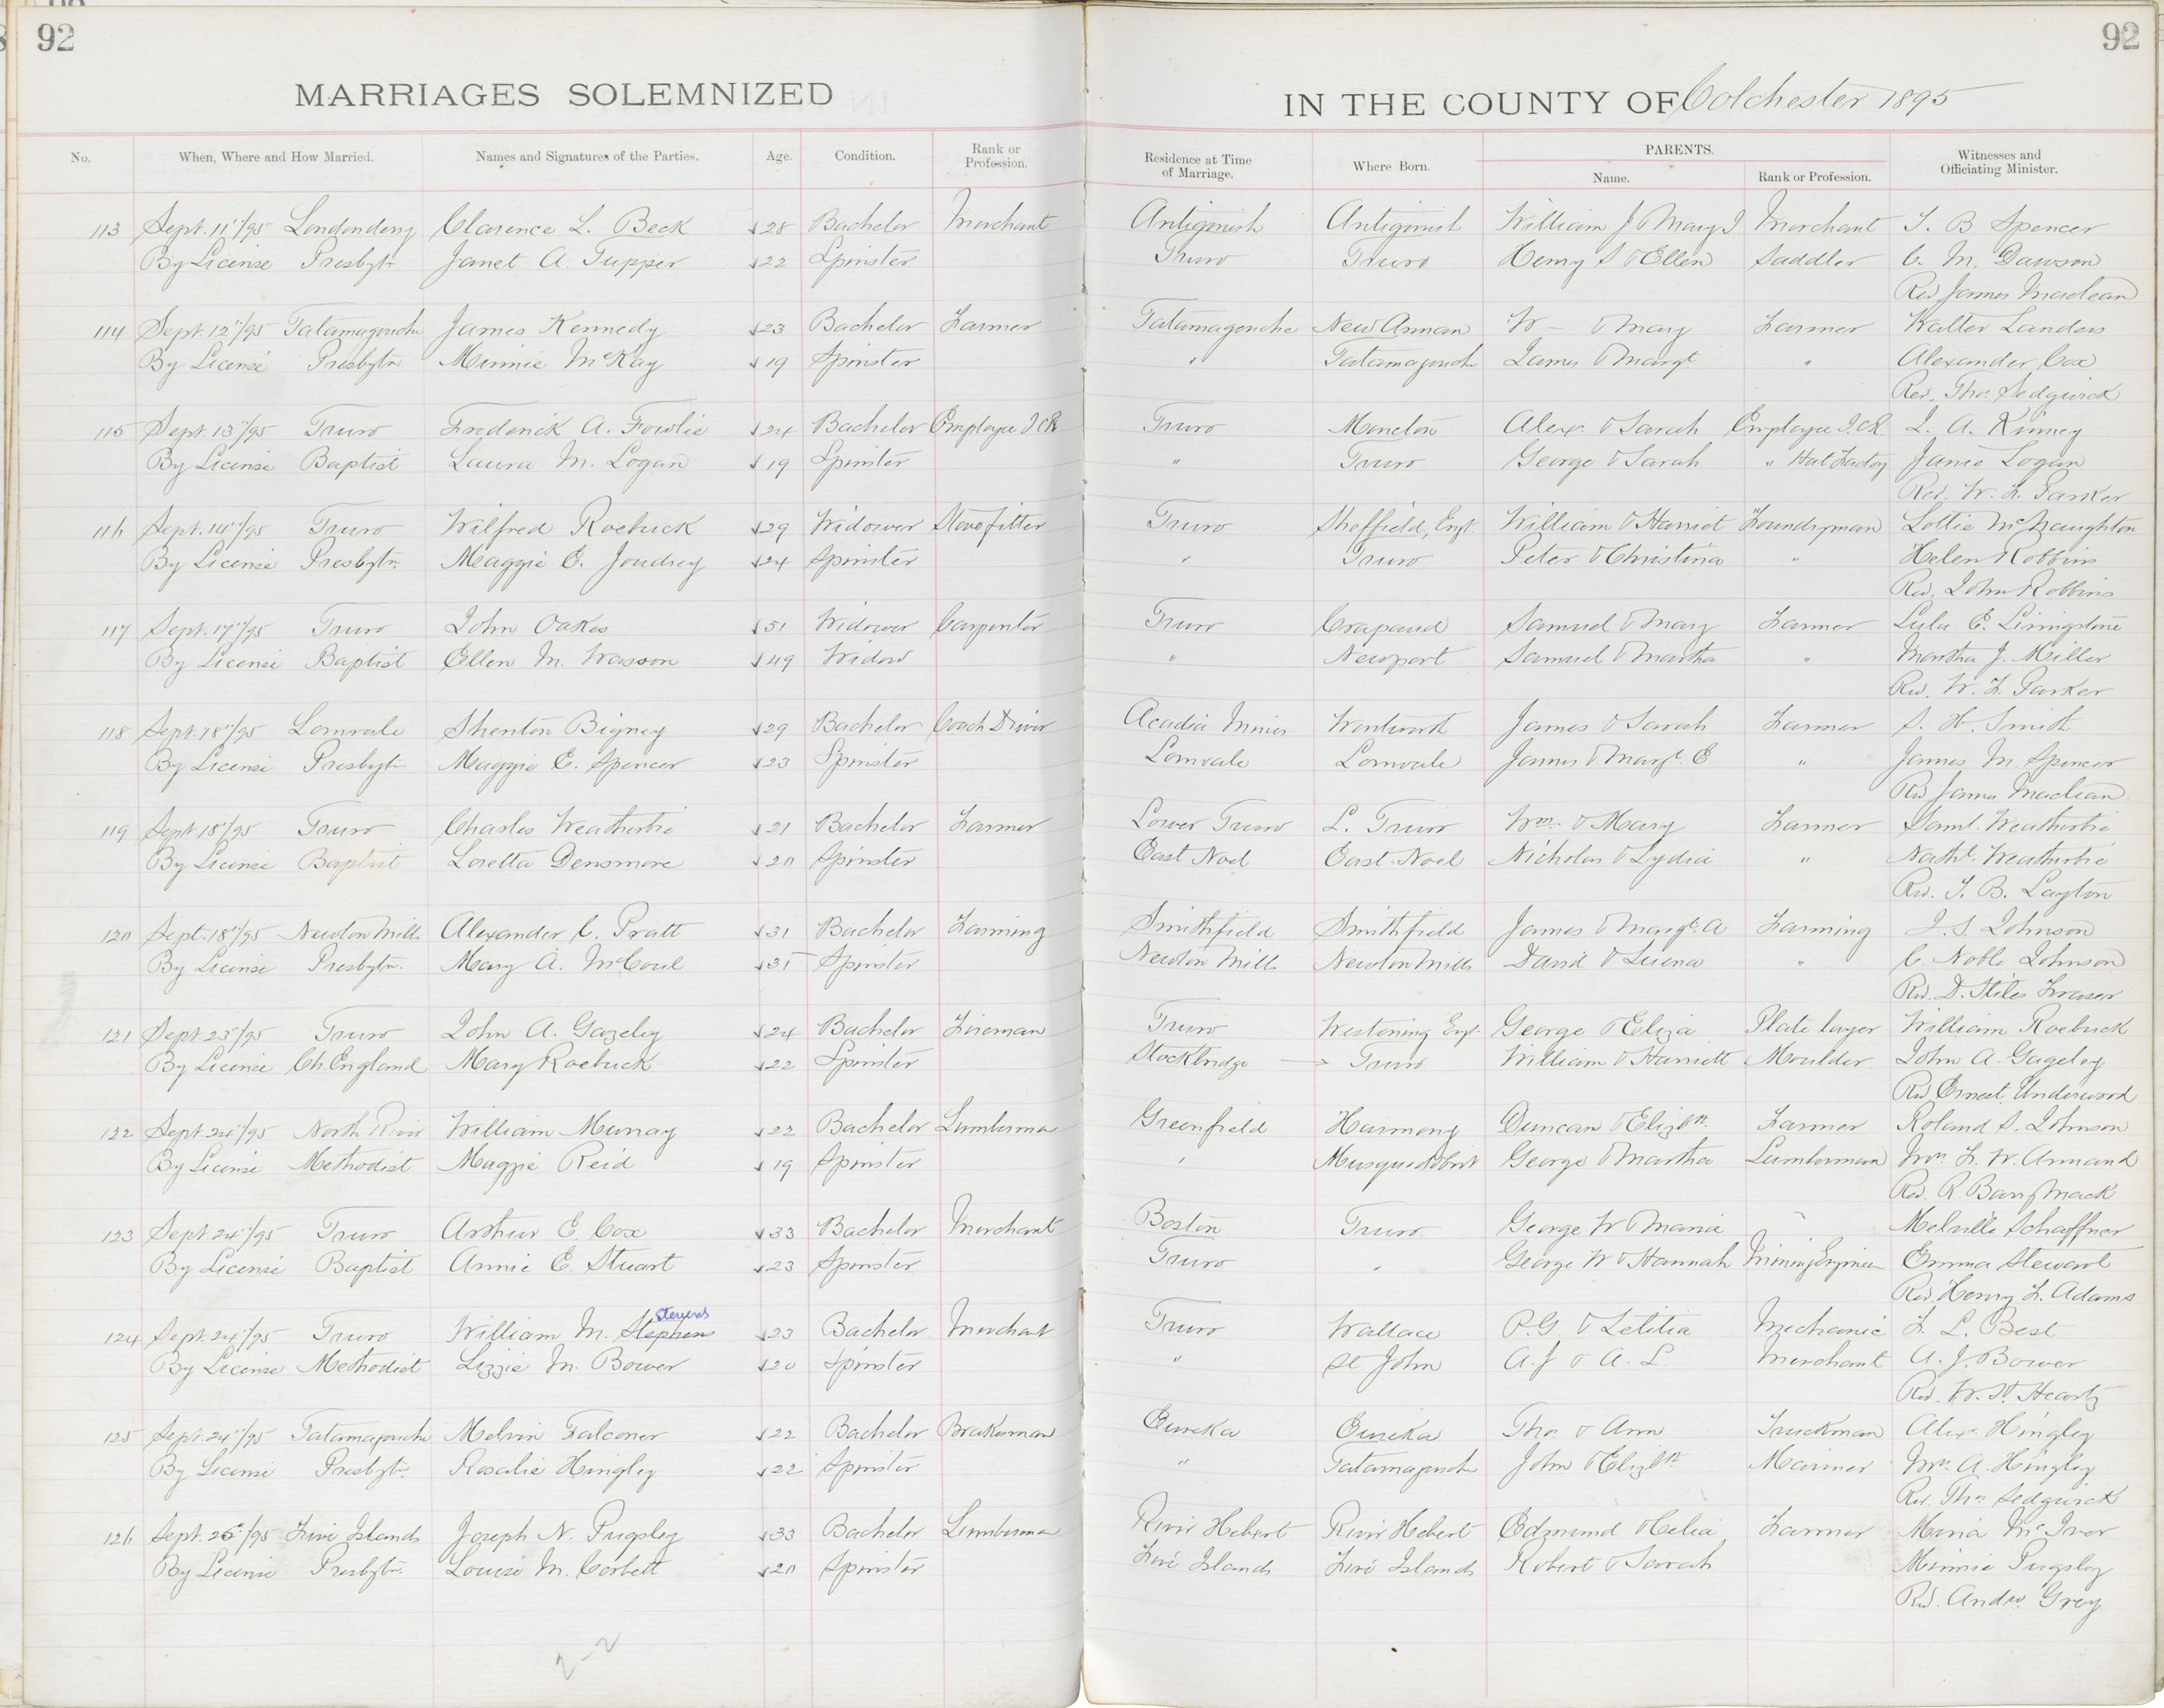 92
92
MARRIAGES SOLEMNIZED IN THE COUNTY OF Colchester 1895
No. When, Where and How Married. Names and Signatures of the Parties. Age. Condition. Rank or Profession. Residence at Time of Marriage. Where Born. PARENTS. Name. Rank or Profession. Witnesses and Officiating Minister.
113 Sept. 11"/95 Londonderry Clarence L. Beck 28 Bachelor Merchant Antigonish Antigonish William J & Mary J Merchant T. B. Spencer
By License Presbytn Janet A. Tupper 22 Spinster Truro Truro Henry S & Ellen Saddler C. M. Dawson
Rev James Maclean
114 Sept. 12"/95 Tatamagouche James Kennedy 23 Bachelor Farmer Tatamagouche New Annan W — & Mary Farmer Walter Landers
By License Presbytn Minnie McKay 19 Spinster " Tatamagouche James & Margt. " Alexander Cox
Rev. Thos. Sedgwick
115 Sept. 13"/95 Truro Frederick A. Fowlie 24 Bachelor Employee I.C.R. Truro Moncton Alexr. & Sarah Employee I.C.R. I. A. Kinney
By License Baptist Laura M. Logan 19 Spinster " Truro George & Sarah " Hat Factory Janie Logan
Rev. W. F. Parker
116 Sept. 14"/95 Truro Wilfred Roebuck 29 Widower Stovefitter Truro Sheffield, Engt. William & Harriet Foundryman Lottie McNaughton
By License Presbytn. Maggie E. Joudrey 24 Spinster " Truro Peter & Christina " Helen Robbins
Rev. John Robbins
117 Sept. 17"/95 Truro John Oakes 51 Widower Carpenter Truro Crapaud Samuel & Mary Farmer Lulu E. Livingstone
By License Baptist Ellen M. Wasson 49 Widow " Newport Samuel & Martha " Martha J. Miller
Rev. W. F. Parker
118 Sept. 18"/95 Lornvale Shenton Bigney 29 Bachelor Coach Driver Acadia Mines Wentworth James & Sarah Farmer S. H. Smith
By License Presbytn Maggie E. Spencer 23 Spinster Lornvale Lornvale James & Margt. E " James M. Spencer
Rev James Maclean
119 Sept 18"/95 Truro Charles Weatherbie 21 Bachelor Farmer Lower Truro L. Truro Wm. & Mary Farmer Saml. Weatherbie
By License Baptist Loretta Densmore 20 Spinster East Noel East Noel Nicholas & Lydia " Nathl. Weatherbie
Rev. J. B. Layton
120 Sept. 18"/95 Newton Mills Alexander C. Pratt 31 Bachelor Farming Smithfield Smithfield James & Margt. A Farming J. S. Johnson
By License Presbytn. Mary A. McCoul 35 Spinster Newton Mills Newton Mills David & " C. Noble Johnson
Rev. D. Stiles Fraser
121 Sept. 23"/95 Truro John A. Gazeley 24 Bachelor Fireman Truro Westoning Engt. George & Eliza Plate layer William Roebuck
By License Ch. England Mary Roebuck 22 Spinster Stocktridge → Truro William & Harriett Moulder John A. Gazeley
Rev Ernest Underwood
122 Sept. 24"/95 North River William Murray 22 Bachelor Lumberman Greenfield Harmony Duncan & Elizbth. Farmer Roland S. Johnson
By License Methodist Maggie Reid 19 Spinster " Musquodoboit George & Martha Lumberman Mrs. F. W. Armand
Rev. R. Barry Mack
123 Sept. 24"/95 Truro Arthur E. Cox 33 Bachelor Merchant Boston Truro George W & Maria " Melville Schaffner
By License Baptist Annie E. Stuart 23 Spinster Truro " George W & Hannah Mining Engineer Emma Stewart
Rev. Henry F. Adams
124 Sept. 24"/95 Truro William M. Stephens Stevens 23 Bachelor Merchant Truro Wallace P.G & Letitia Mechanic F. L. Best
By License Methodist Lizzie M. Bower 20 Spinster " St John A.J & A. L. Merchant A. J. Bower
Rev. W. H. Heartz
125 Sept. 24"/95 Tatamagouche Melvin Falconer 22 Bachelor Brakeman Eureka Eureka Thos. & Ann Truckman Alexr. Hingley
By License Presbytn. Rosalie Hingley 22 Spinster " Tatamagouche John & Elizbth Mariner Mrs. A. Hingley
Rev. Thos. Sedgwick
126 Sept. 26"/95 Five Islands Joseph N. Pugsley 33 Bachelor Lumberman River Hebert River Hebert Edmund & Celia Farmer Maria McIver
By License Presbytn. Louise M. Corbett 20 Spinster Five Islands Five Islands Robert & Sarah Minnie Pugsley
Rev. Andw. Grey
2-2